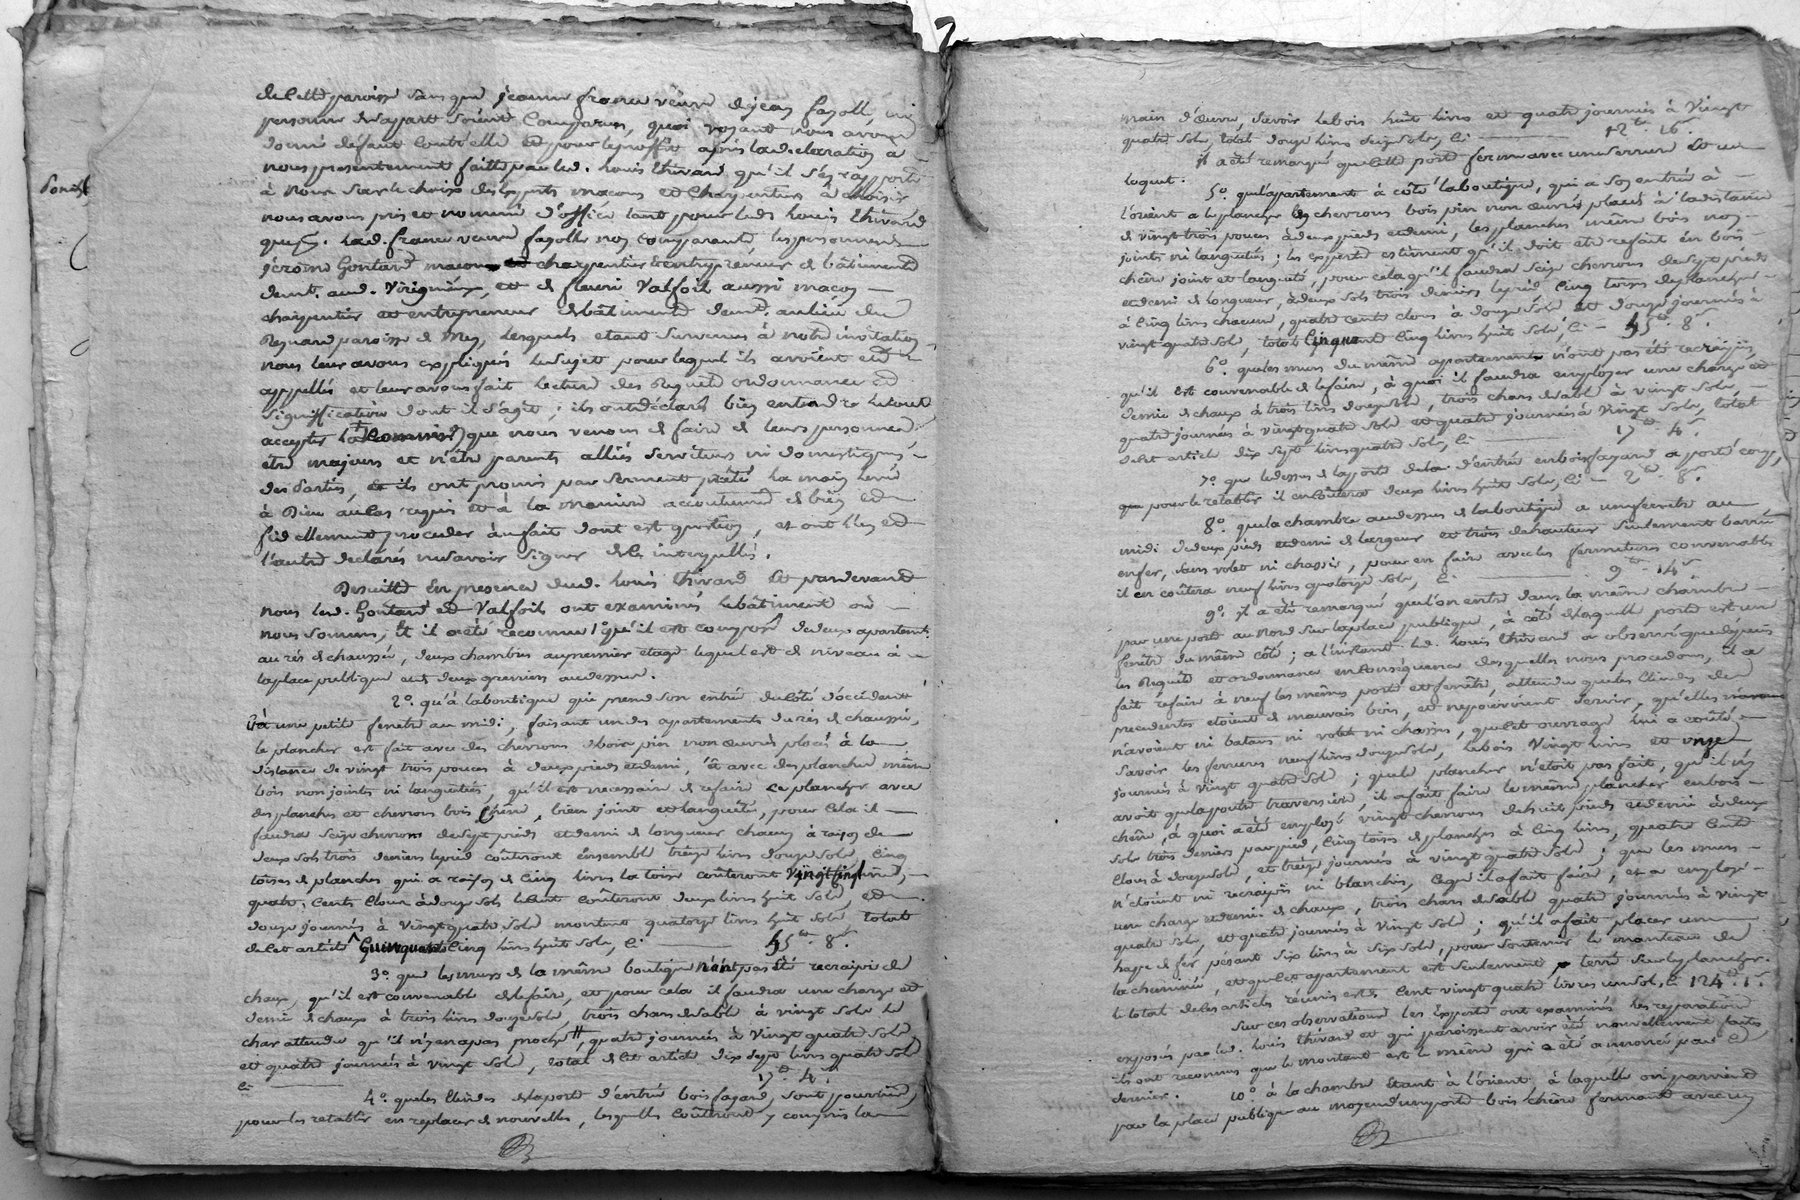 de cette paroisse sans que jeanne franco veuve de jean fagolle, ni
personne de sa part soient comparus, quoi voyant nous avons
donné défaut contr'elle et pour le profit après la declaration à
nous presentement faitte par led. Louis thivard, qu'il s'en rapporte
à nous sur le choix des experts macons et charpentiers à choisir
nous avons pris et nommé d'office tant pour led. Louis thivard
que lad. franco veuve fagolle non comparante, les personnes
jérome Gontard macon charpentier & entrepreneur de bâtiments
demt. aud. Virigneux, et de fleuri Valfort aussi macon
charpentier et entrepreneur de bâtiments demt. au lieu du
paroisse de lesquels etant survenus à notre invitation
nous leur avons expliqués le sujet pour lequel ils avoient eté
appellés et leur avons fait lecture des Requete ordonnance et
signiffication dont il s'agit ; ils ont déclarés bien entendre le tout
accepter la nomination que nous venons de faire de leurs personnes
être majeurs et n'être parents alliés serviteurs ni domestiques
des parties, ils ont promis par serment prêté la main levée
à Dieu au cas requis et à la maniere accoutumée de bien et
fidellement proceder au fait dont est question, et ont l'un et
l'autre declarés ne savoir signer de ce interpellés.
De suitte en presence dud. Louis thivard et pardevant
nous led. Gontard et Valfort ont examinés le bâtiment où
nous sommes, et il a eté reconnu 1° qu'il est composé de deux apartemt.
au rés de chaussée, deux chambres au premier etage lequel est de niveau à
la place publique et deux greniers au dessus.
2° qu'à la boutique qui prend son entrée du côté d'occident
a une petite fenetre au midi, faisant un des apartements du rés de chaussée,
le plancher est fait avec des chevrons de bois pin non œuvrés placés à la
distance de vingt trois pouces à deux pieds et demi, et avec des planches même
bois non joints ni languetés, qu'il est necessaire de refaire ce plancher avec
des planches et chevrons bois chêne, bien joint et languetés, pour cela il
faudra seize chevrons de sept pieds et demi de longueur chacun à raison de
deux sols trois deniers le pied coûteront ensemble treize livres douze sols, cinq
toises de planches qui a raison de cinq livres la toise coûteront vingt cinq livres,
quatr. cents clous à douze sols le cent coûteront deux livres huit sols, et
douze journées à vingt quatre sols montant quatorze livres huit sols total
de cet article Cinquante cinq livres huit sols, ci 55 lt. 8 s.
3° que les murs de la même boutique n'ont pas été recraipis de
chaux, qu'il est convenable de le faire, et pour cela il faudra une charge et
demie de chaux à trois livres douze sols, trois chars de sable à vingt sols le
char attendu qu'il n'y en a pas proche, quatre journées à vingt quatre sols
et quatre journées à vingt sols, total de cet article dix sept livres quatre sols
ci 17 lt. 4 s.
4° que les de la porte d'entrée bois fayard, sont pourries,
pour les retablir en replacer de nouvelles, lesquelles coûteront y compris la
main d'œuvre, savoir le bois huit livres et quatre journées à vingt
quatre sols, total douze livres seize sols, ci 12 lt. 16 s.
il a eté remarqué que cette porte ferme avec une serrure et un
loquet.
5° que l'apartement à côté la boutique, qui a son entrée à
l'orient a le plancher les chevrons bois pin non œuvrés placés à la distance
de vingt trois pouces à deux pieds et demi, les planches même bois non
joints ni languetés ; les experts estiment qu'il doit etre refait en bois
chêne joint et langueté, pour cela qu'il faudra seize chevrons de sept pieds
et demi de longueur, à deux sols trois deniers le pied cinq toises de plancher
à cinq livres chacune, quatre cents clous à douze sols et douze journées à
vingt quatre sols, total Cinquante cinq livres huit sols, ci 55 lt. 8 s.
6° que les murs du même apartement n'ont pas été recraipis
qu'il est convenable de le faire, à quoi il faudra employer une charge et
demie de chaux à trois livres douze sols, trois chars de sable à vingt sols,
quatre journées à vingt quatre sols et quatre journées à vingt sols, total
de cet article dix sept livres quatre sols, ci 17 lt. 4 s.
7° que le dessus de la porte de la d'entrée en bois fayard a porté coup,
que pour le retablir il en coûtera deux livres huit sols, ci 2 lt. 8 s.
8° que la chambre au dessus de la boutique a une fenetre au
midi de deux pieds et demi de largeur et trois de hauteur seulement barrée
en fer, sans volet ni chassis, pour en faire avec les fermetures convenables
il en coûtera neuf livres quatorze sols, ci 9 lt. 14 s.
9° il a eté remarqué que l'on entre dans la même chambre
par une porte au nord sur la place publique, à côté de laquelle porte est une
fenêtre du même côté ; a l'instant led. Louis thivard a observé que depuis
les Requete et ordonnance en conséquence desquelles nous procedons, il a
fait refaire à neuf les mêmes porte et fenêtre, attendu que les de
precedentes etoient de mauvais bois, et ne pouvoient servir, qu'elles
n'avoient ni batans ni volets ni chassis, que cet ouvrage lui a coûté
savoir les ferrures neuf livres douze sols, le bois vingt livres et onze
journées à vingt quatre sols ; que le plancher n'etoit pas fait, qu'il n'y
avoit que la poutre traversiere, il a fait faire le même plancher en bois
chêne, à quoi a été employé vingt chevrons de huit pieds et demi à deux
sols trois deniers par pied, cinq toises de planches à cinq livres, quatre cents
clous à douze sols, et treize journées à vingt quatre sols ; que les murs
n'étoient ni recraipis ni blanchis, ce qu'il a fait faire, et a employé
une charge et demie de chaux, trois chars de sable quatre journées à vingt
quatre sols, et quatre journées à vingt sols ; qu'il a fait placer une
happe de fer pesant six livres à six sols, pour soutenir le manteau de
la cheminée, et que cet appartement est seulement terré sur le plancher.
le total de ces articles réunis est de cent vingt quatre livres un sol, ci 124 lt. 1 s.
Sur ces observations les experts ont examinés les reparations
exposées par led. Louis thivard et qui paroissent avoir été nouvellement faites
ils ont reconnus que le montant est le même qui a été anoncé par ce
dernier. 10° à la chambre étant à l'orient, à laquelle on parvient
par la place publique au moyen d'une porte bois chêne fermant avec un